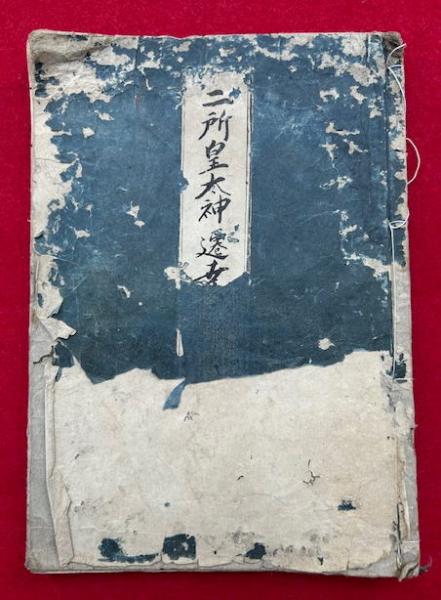 二所皇太神遷幸